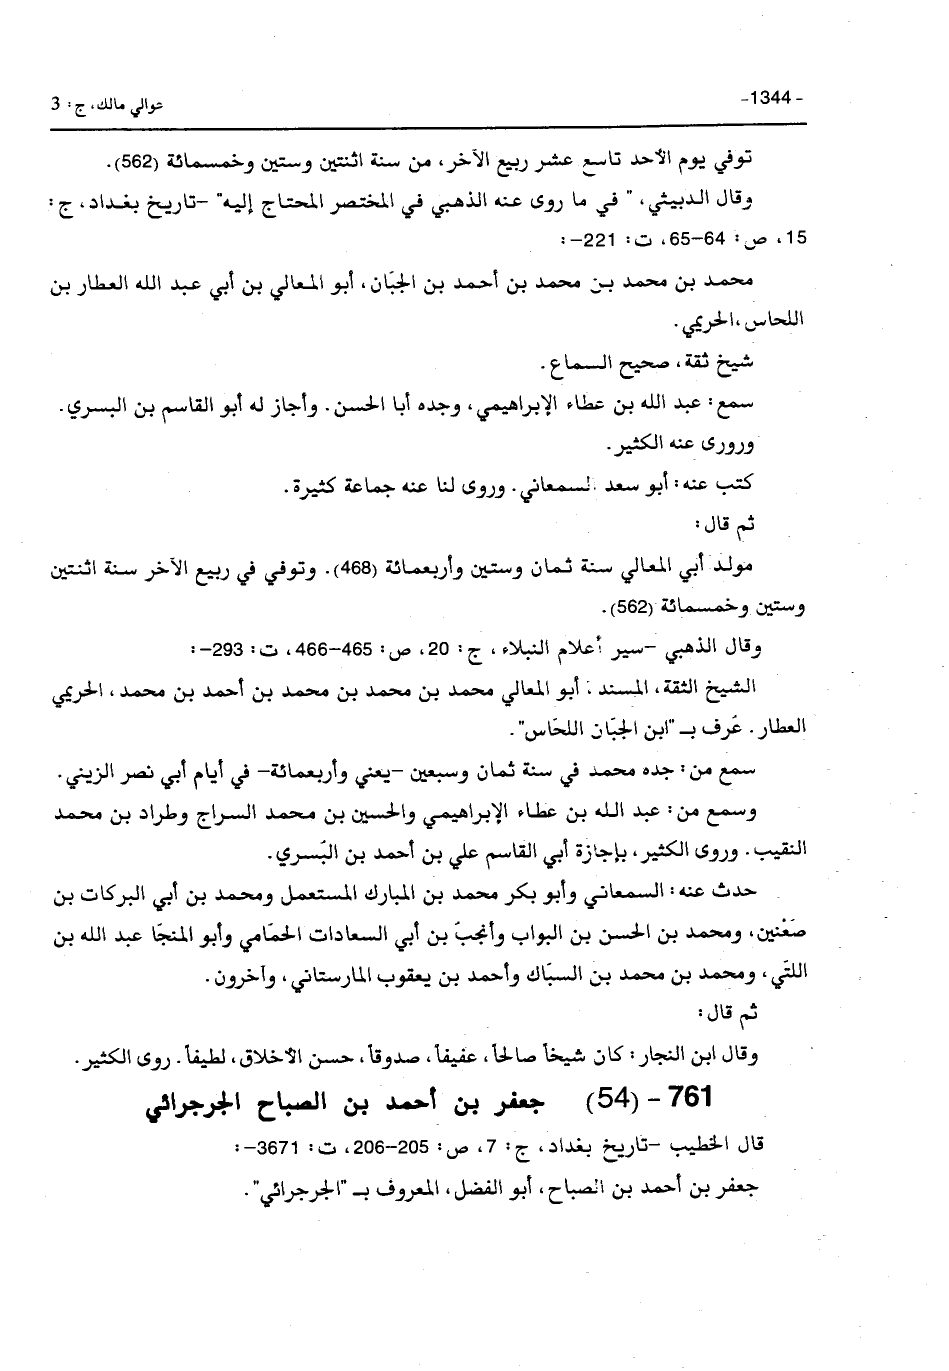 -1344- عوالي مالك، ج: 3
توفي يوم الأحد تاسع عشر ربيع الآخر، من سنة اثنتين وستين وخمسمائة (562).
وقال الدبيثي، " في ما روى عنه الذهبي في المختصر المحتاج إليه" -تاريخ بغداد، ج:
15، ص: 64-65، ت: 221-:
محمد بن محمد بن محمد بن أحمد بن الجبَان، أبو المعالي بن أبي عبد الله العطار بن
اللحاس،الحريمي.
شيخ ثقة، صحيح السماع.
سمع: عبد الله بن عطاء الإبراهيمي، وجده أبا الحسن. وأجاز له أبو القاسم بن البسري.
ورورى عنه الكثير.
كتب عنه: أبو سعد السمعاني. وروى لنا عنه جماعة كثيرة.
ثم قال:
مولد أبي المعالي سنة ثمان وستين وأربعمائة (468). وتوفي في ربيع الآخر سنة اثنتين
وستين وخمسمائة (562).
وقال الذهبي -سير أعلام النبلاء، ج: 20، ص: 465-466، ت: 293-:
الشيخ الثقة، المسند: أبو المعالي محمد بن محمد بن محمد بن أحمد بن محمد، الحريمي
العطار. عَرف بـ "ابن الجبَان اللحَاس".
سمع من: جده محمد في سنة ثمان وسبعين -يعني وأربعمائة- في أيام أبي نصر الزيني.
وسمع من: عبد الله بن عطاء الإبراهيمي والحسين بن محمد السراج وطراد بن محمد
النقيب. وروى الكثير، بإجازة أبي القاسم علي بن أحمد بن البَسري.
حدث عنه: السمعاني وأبو بكر محمد بن المبارك المستعمل ومحمد بن أبي البركات بن
صَعْنين، ومحمد بن الحسن بن البواب وأنجبَ بن أبي السعادات الحمَامي وأبو المنجَا عبد الله بن
اللتَي، ومحمد بن محمد بن السبَاك وأحمد بن يعقوب المارستاني، وآخرون.
ثم قال:
وقال ابن النجار: كان شيخاً صالحاً، عفيفاً، صدوقاً، حسن الأخلاق، لطيفاً. روى الكثير.
761 - (54) جعفر بن أحمد بن الصباح الجرجرائي
قال الخطيب -تاريخ بغداد، ج: 7، ص: 205-206، ت: 3671-:
جعفر بن أحمد بن الصباح، أبو الفضل، المعروف بـ "الجرجرائي".